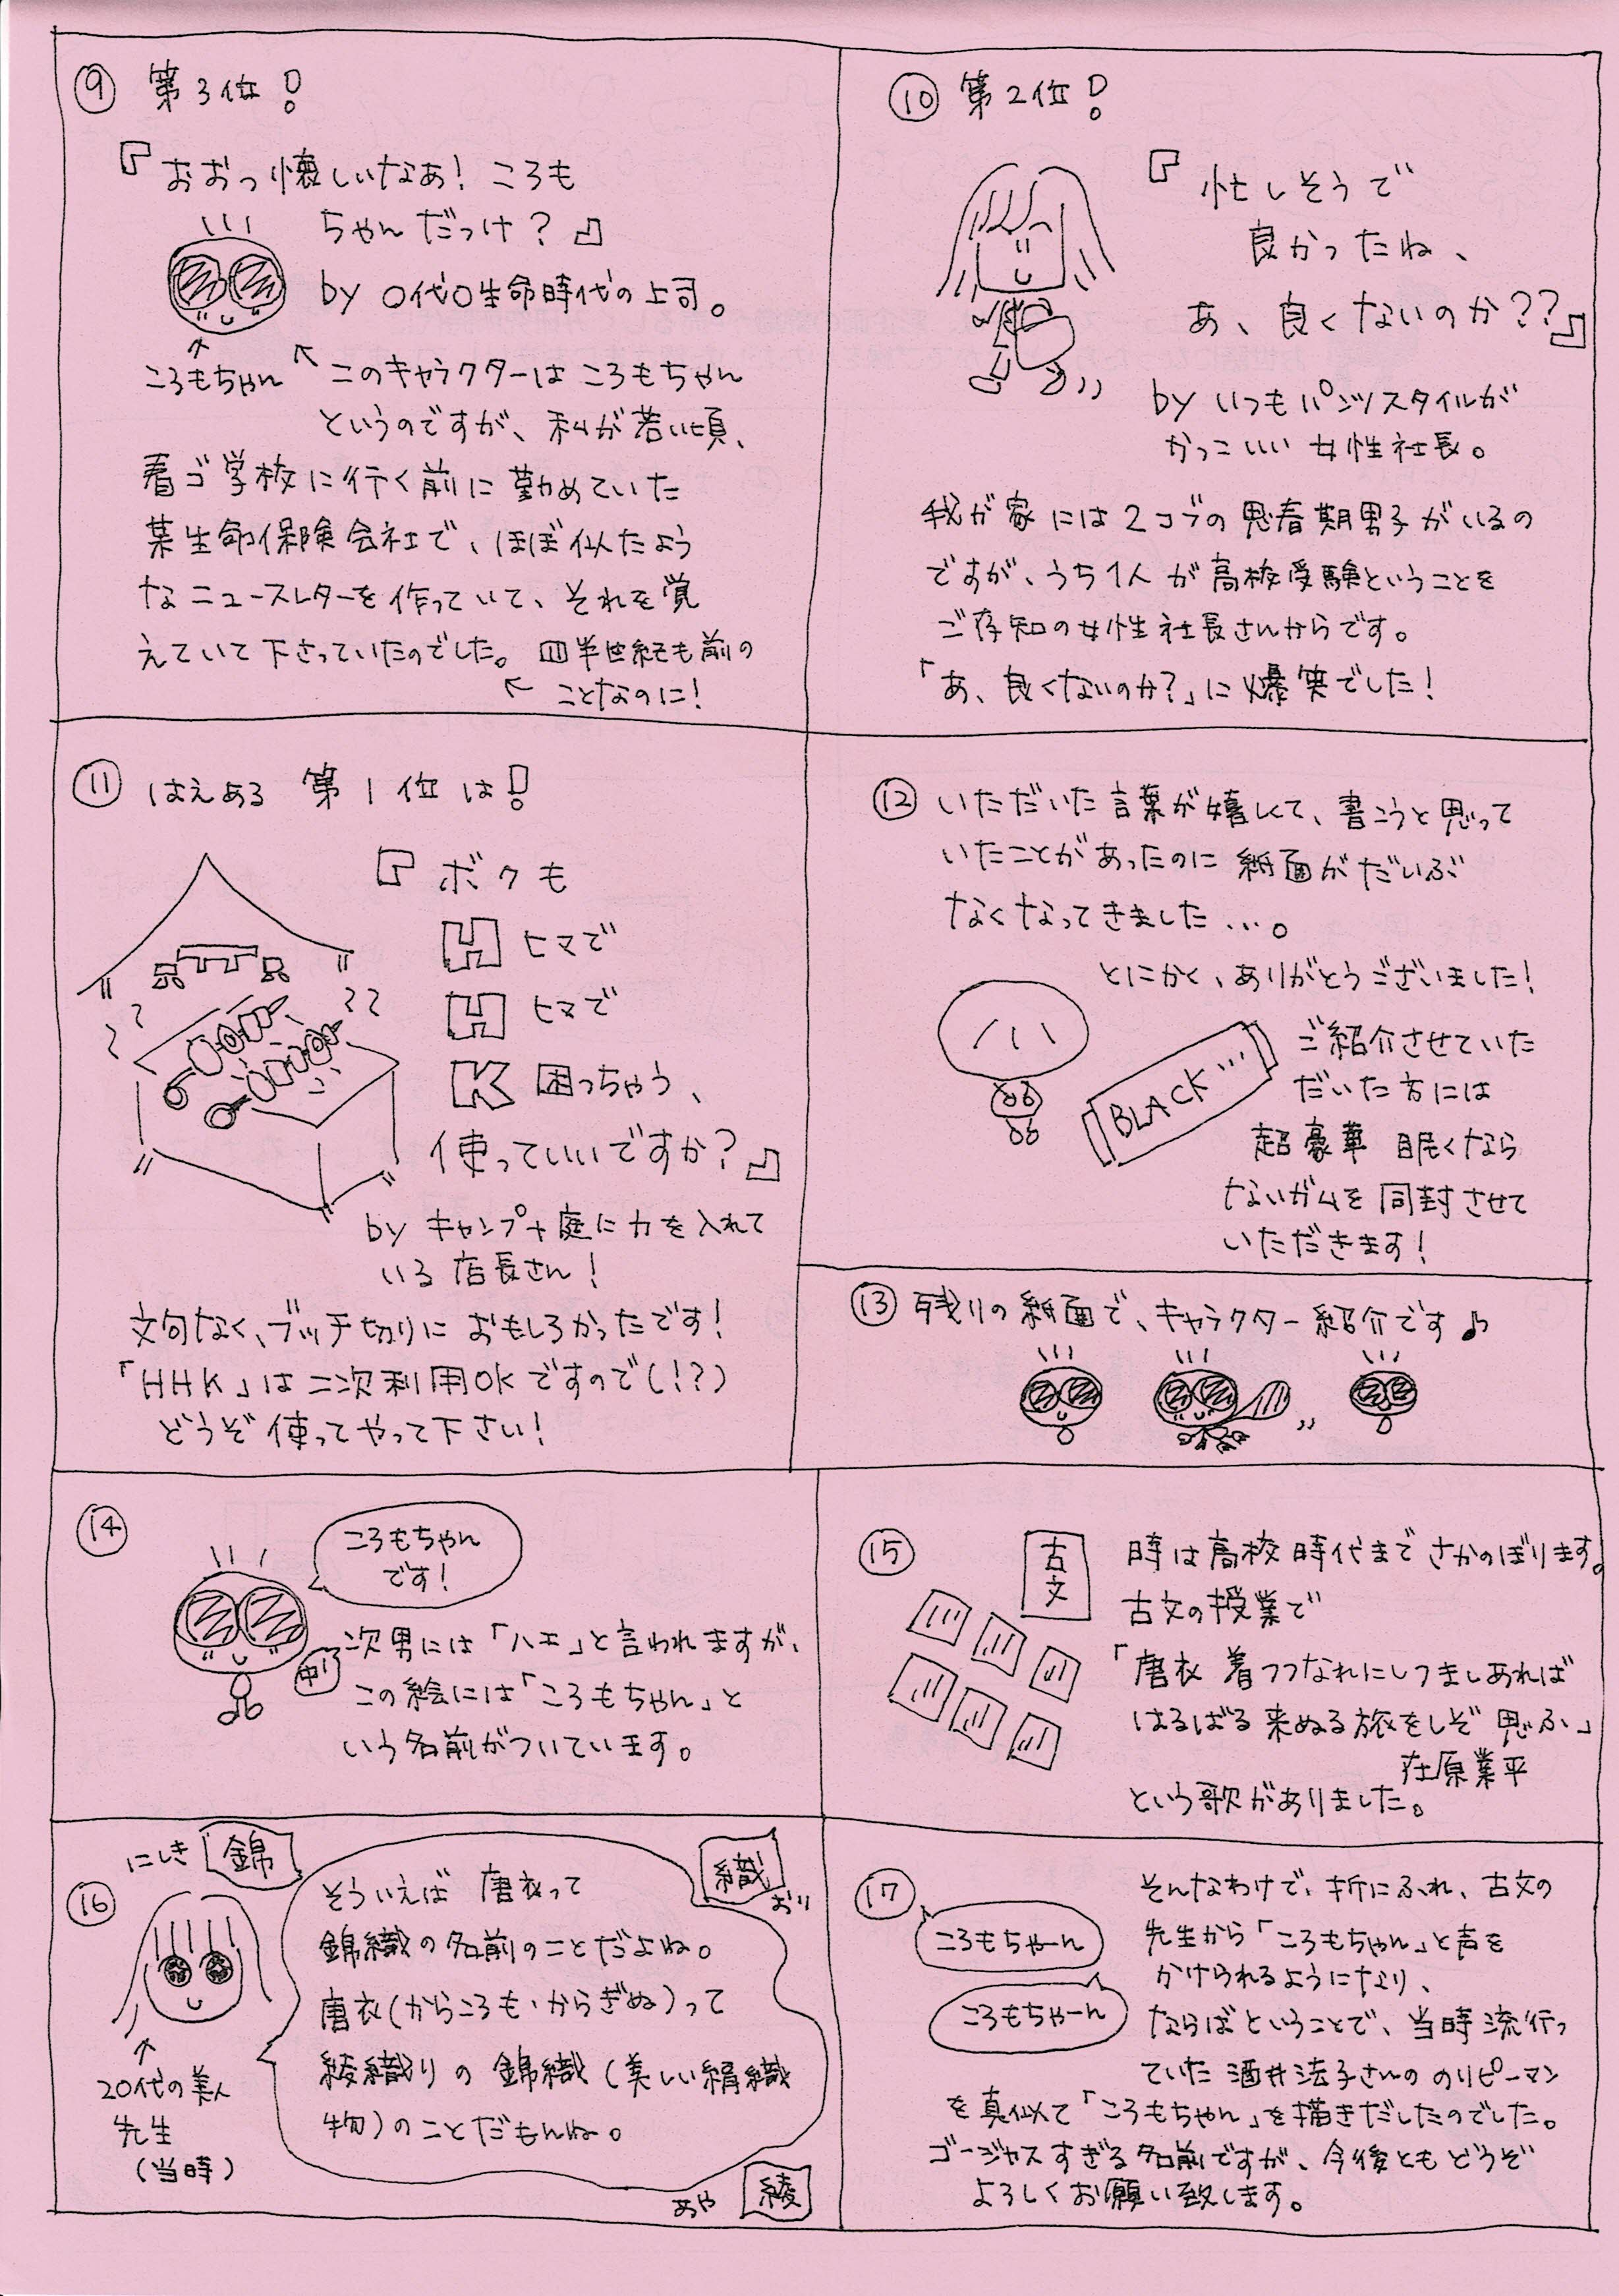 ⑨ 第3位！
『おおっ懐しいなあ！ころも
ちゃんだっけ？』
by ○代○生命時代の上司。
ころもちゃん
このキャラクターはころもちゃん
というのですが、私が若い頃、
看ゴ学校に行く前に勤めていた
某生命保険会社で、ほぼ似たよう
なニュースレターを作っていて、それを覚
えていて下さっていたのでした。四半世紀も前の
ことなのに！
⑩ 第2位！
『忙しそうで
良かったね、
あ、良くないのか？？』
by いつもパンツスタイルが
かっこいい女性社長。
我が家には2コブの思春期男子がいるの
ですが、うち1人が高校受験ということを
ご存知の女性社長さんからです。
「あ、良くないのか？」に爆笑でした！
⑪ はえある 第1位は！
『ボクも
H ヒマで
H ヒマで
K 困っちゃう、
使っていいですか？』
by キャンプ+庭に力を入れて
いる店長さん！
文句なく、ブッチ切りにおもしろかったです！
「HHK」は二次利用OKですので（！？）
どうぞ使ってやって下さい！
⑫ いただいた言葉が嬉しくて、書こうと思って
いたことがあったのに紙面がだいぶ
なくなってきました…。
とにかく、ありがとうございました！
BLACK…
ご紹介させていた
だいた方には
超豪華 眠くなら
ないガムを同封させて
いただきます！
⑬ 残りの紙面で、キャラクター紹介です♪
⑭
ころもちゃん
です！
次男には「ハエ」と言われますが、
中1
この絵には「ころもちゃん」と
いう名前がついています。
⑮
古文
時は高校時代までさかのぼります。
古文の授業で
「唐衣 着つつなれにしつましあれば
はるばる来ぬる旅をしぞ思ふ」
在原業平
という歌がありました。
⑯
にしき 錦
織 おり
そういえば 唐衣って
錦織の名前のことだよね。
唐衣（からころも・からぎぬ）って
綾織りの錦織（美しい絹織
物）のことだもんね。
20代の美人
先生
（当時）
あや 綾
⑰
ころもちゃーん
ころもちゃーん
そんなわけで、折にふれ、古文の
先生から「ころもちゃん」と声を
かけられるようになり、
ならばということで、当時流行っ
ていた酒井法子さんののりピーマン
を真似て「ころもちゃん」を描きだしたのでした。
ゴージャスすぎる名前ですが、今後ともどうぞ
よろしくお願い致します。